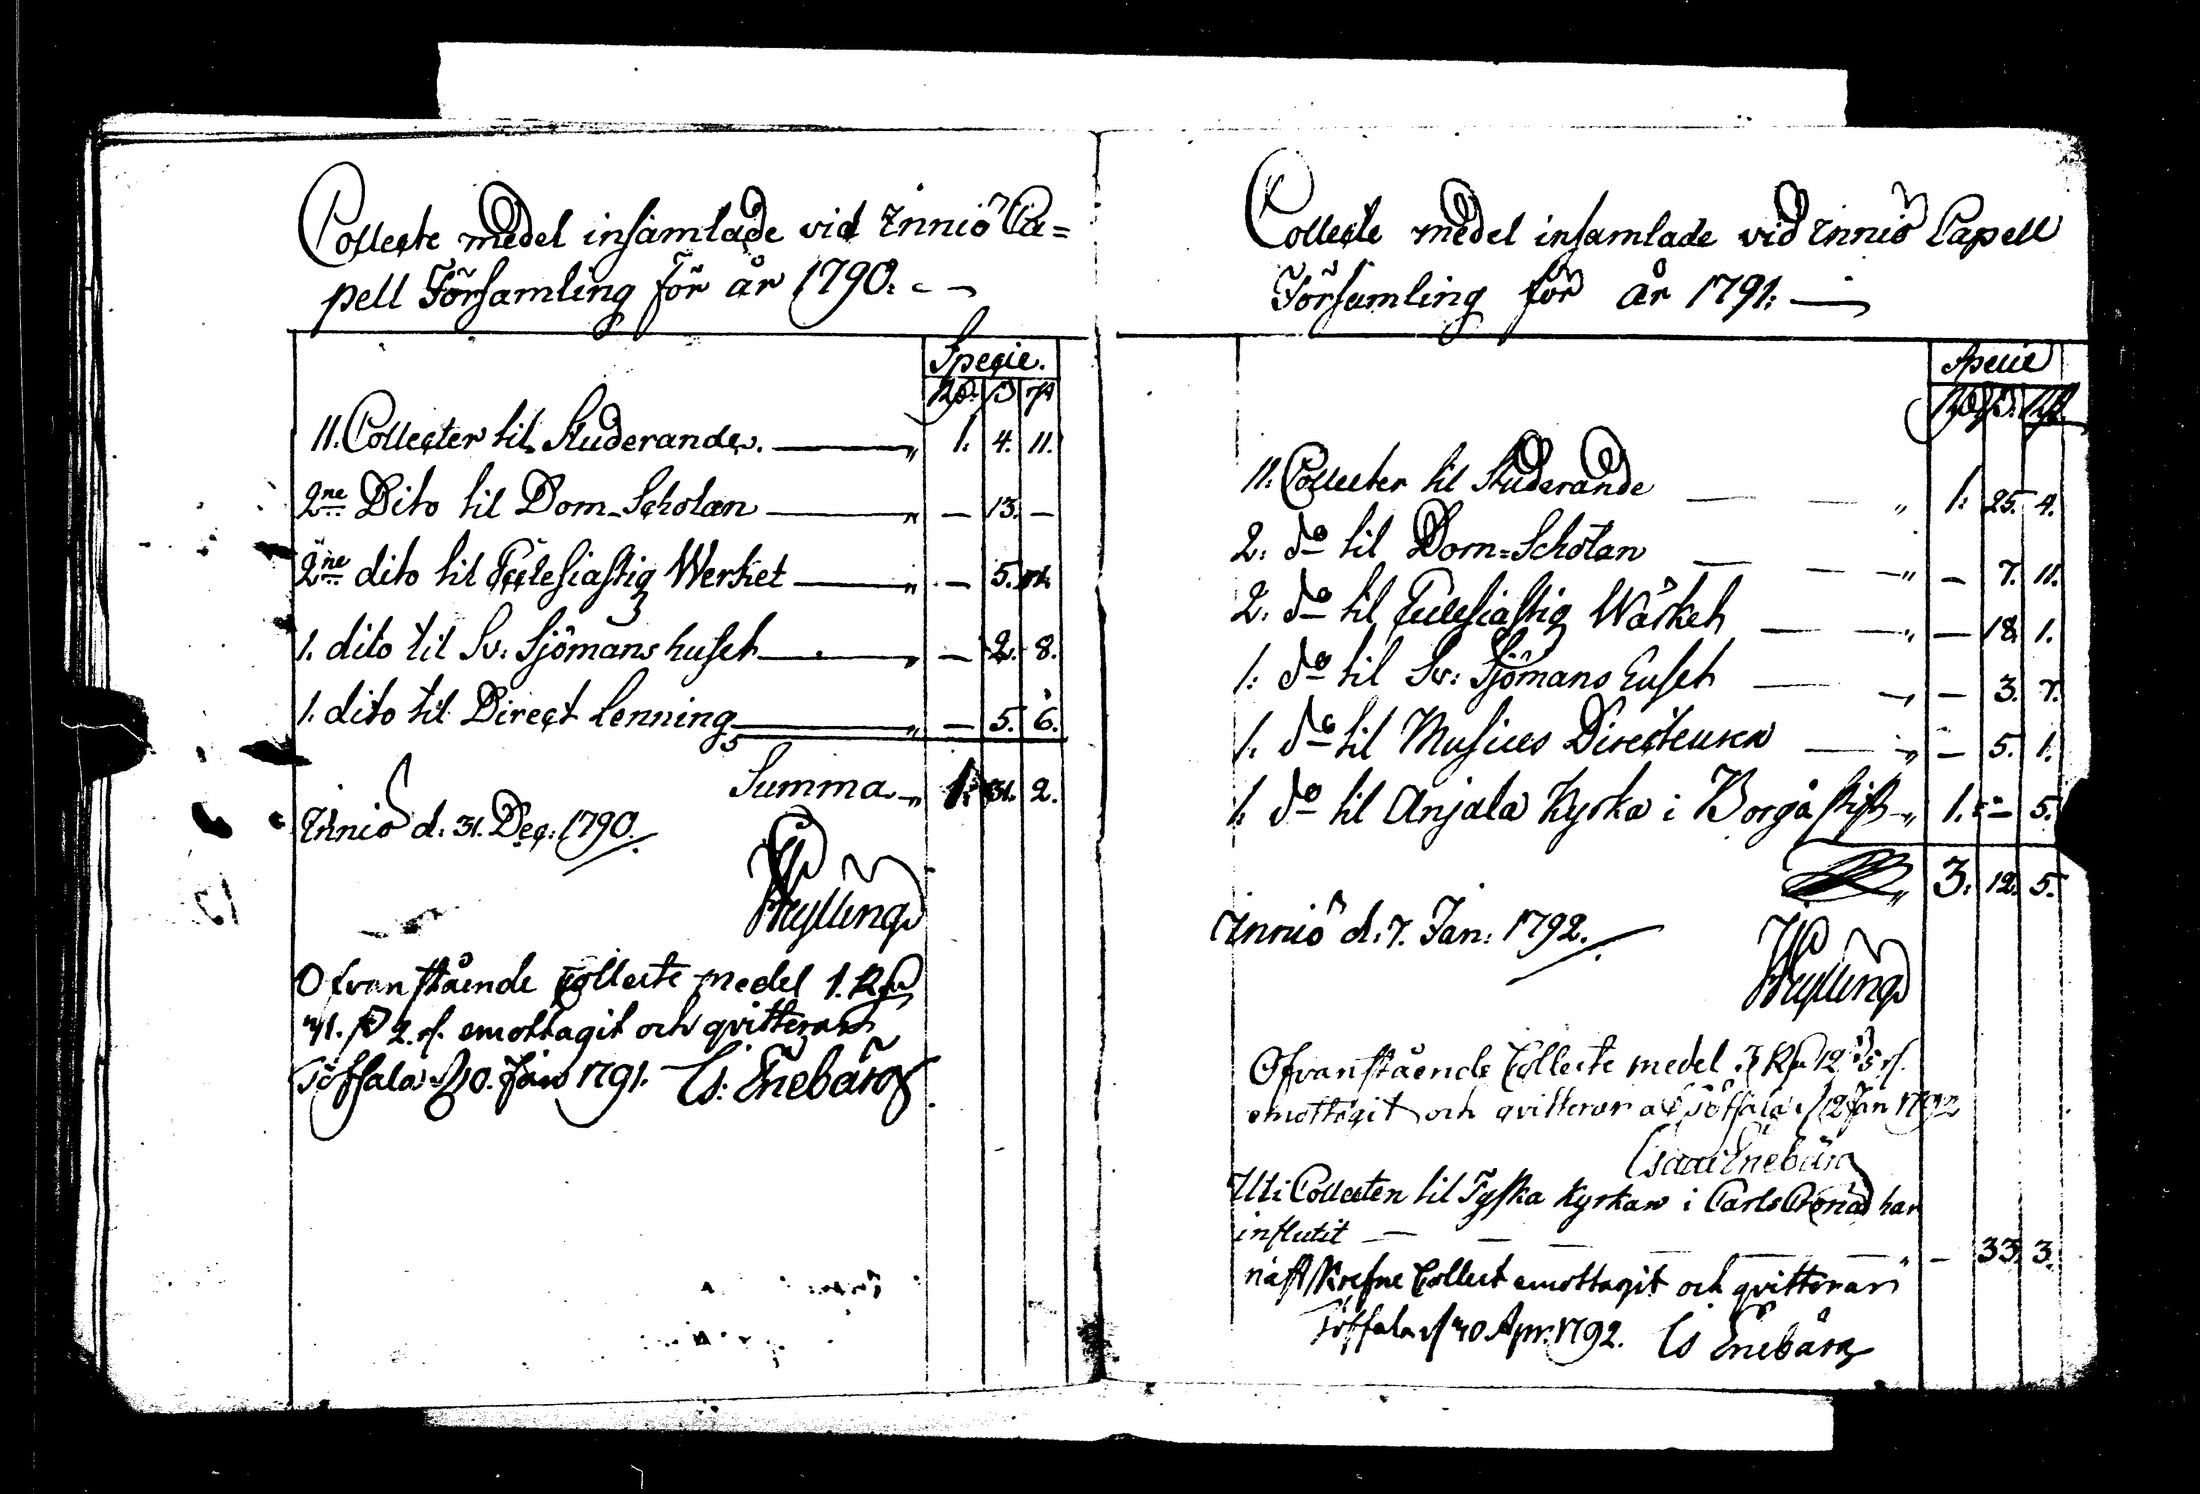 Collecte medel insamlade vid Innio Ca=
pell Församling för år 1790. - -
Specie.
Rd. ß rs
11. Collecter til Studerande. — " 1. 4. 11.
2ne Dito til Dom-Scholan — " — 13. —
2ne dito til Ecclesiastiq Werket — " — 5.
1. dito til Sv: Sjömanshuset — " — 2. 8.
1. dito til Direct Lenning — " — 5. 6.
Summa " 1. 31. 2.
Innio d. 31. Dec: 1790.
Wyllengs
Ofvanstående Collecte medel 1. Rd
31. ß 2. rs. emottagit och qvitterar
Töfsala d 20. Jan 1791. Is: Enebärg
Collecte medel insamlade vid Innio Capell
Församling för år 1791: —
Specie
Rd ß. rs
11. Collecter til Studerande — — " 1: 25. 4.
2: do til Dom=Scholan — — — " — 7. 11.
2: do til Ecclesiastiq Wärket — — " — 18. 1.
1: do til Sv: Sjömans huset — " — 3. 7.
1. do til Musices Directeuren — " — 5. 1.
1. do til Anjala Kyrka i Borgå stift " 1. — 5.
" 3: 12. 5.
Innio d. 7. Jan: 1792.
Wyllengs
Ofvanstående Collecte medel 3 Rd 12 ß 5 rs.
emottagit och qvitterar Töfsala d 12 Jan 1792
Isaac Enebärg
Uti Collecten til Tyska Kyrkan i CarlsCrona har
influtit — — — — — " — 33. 3.
näst skrefne Collect emottagit och qvitterar
Töfsala d 30 Apr. 1792. Is Enebärg